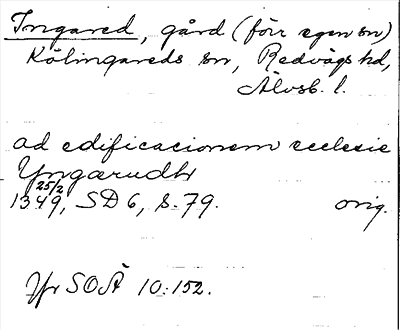 Ingared, gård (förr egen sn)
Kölingareds sn, Redvägs hd,
Älvsb. l.
ad edificacionem ecclesie
Yngærudh
25/2
1349, SD 6, s. 79. orig.
Jfr SOÄ 10:152.